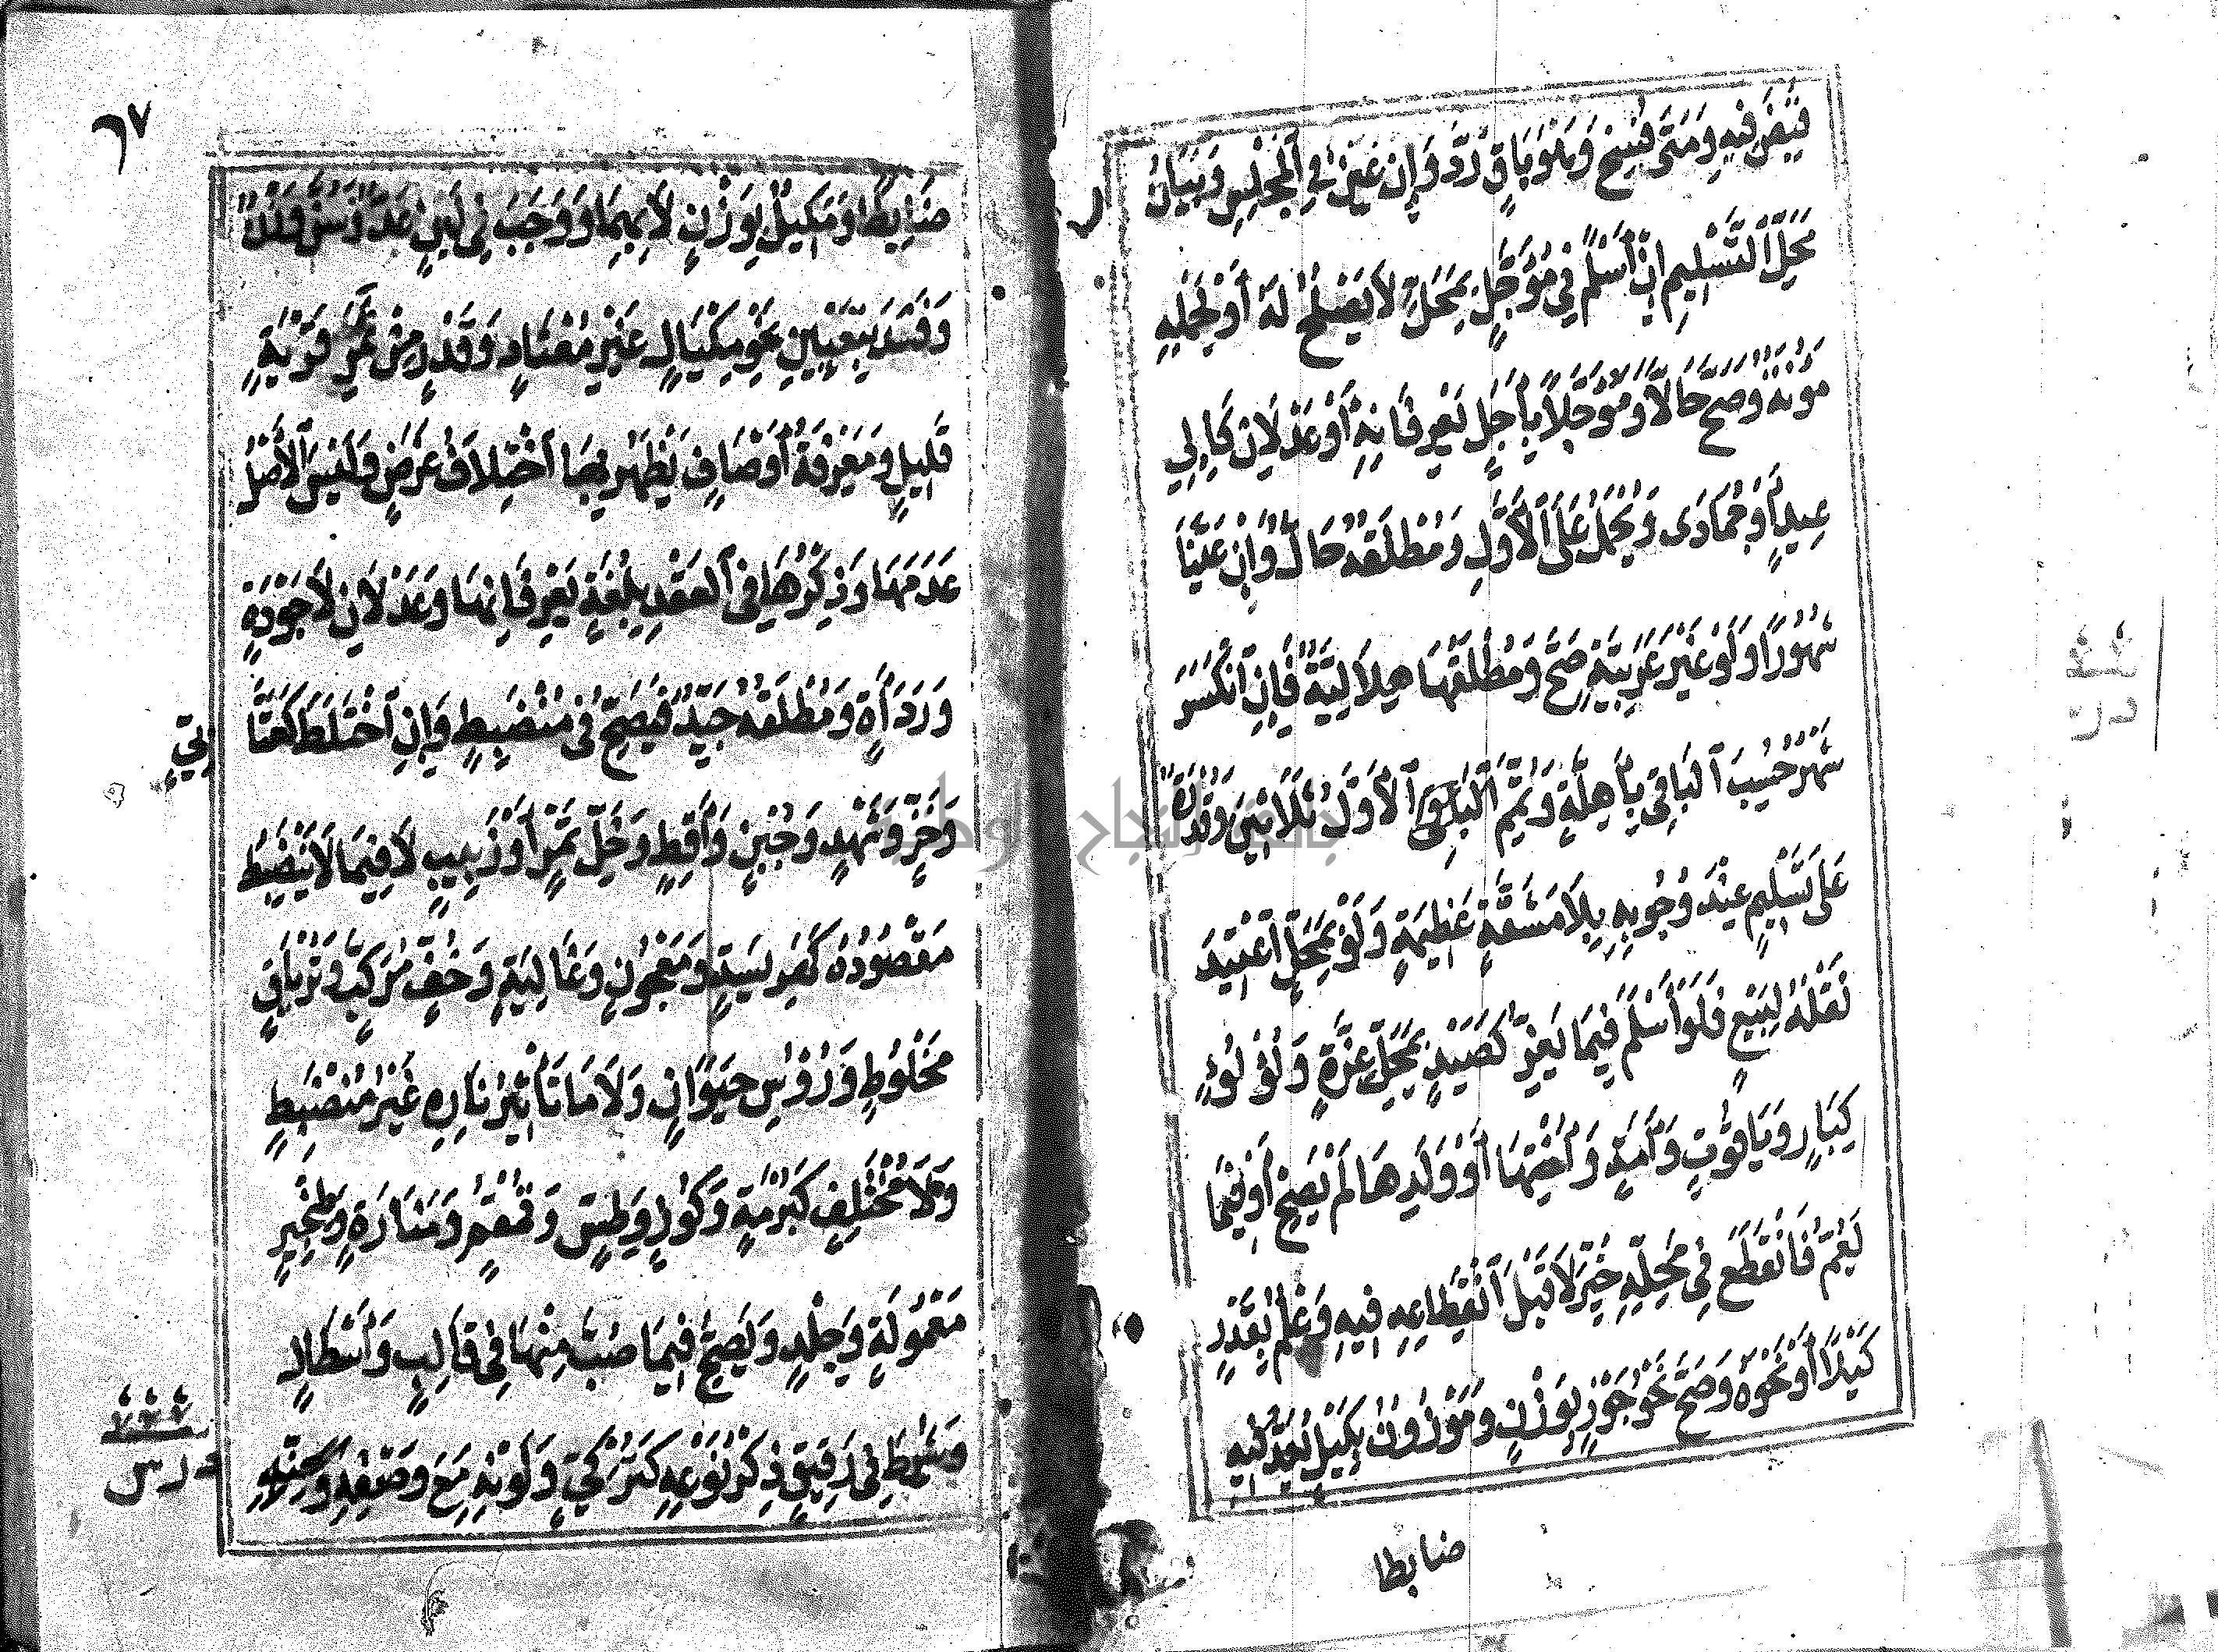 فَيُقْبَضُ فِيهِ وَمَتَى فُسِخَ وَهُوَ بَاقٍ رُدَّ وَإِنْ عُيِّنَ فِي الْمَجْلِسِ وَبَيَانُ
مَحَلِّ التَّسْلِيمِ إِنْ أَسْلَمَ فِي مُؤَجَّلٍ بِمَحَلٍّ لَا يَصْلُحُ لَهُ أَوْ لِحَمْلِهِ
مُؤْنَةٌ وَصَحَّ حَالًّا وَمُؤَجَّلًا بِأَجَلٍ يَعْرِفَانِهِ أَوْ عَدْلَانِ كَإِلَى
عِيدٍ أَوْ جُمَادَى وَيُحْمَلُ عَلَى الْأَوَّلِ وَمُطْلَقُهُ حَالٌّ وَإِنْ عَيَّنَا
شُهُورًا وَلَوْ غَيْرَ عَرَبِيَّةٍ صَحَّ وَمُطْلَقُهَا هِلَالِيَّةٌ فَإِنِ انْكَسَرَ
شَهْرٌ حُسِبَ الْبَاقِي بِأَهِلَّةٍ وَتُمِّمَ الْأَوَّلُ ثَلَاثِينَ وَقُدْرَةٌ
عَلَى تَسْلِيمٍ عِنْدَ وُجُوبِهِ بِلَا مَشَقَّةٍ عَظِيمَةٍ وَلَوْ بِمَحَلٍّ اُعْتِيدَ
نَقْلُهُ لِبَيْعٍ فَلَوْ أَسْلَمَ فِيمَا يَعِزُّ كَصَيْدٍ بِمَحَلِّ عِزَّةٍ وَلُؤْلُؤٍ
كِبَارٍ وَيَاقُوتٍ وَأَمَةٍ وَأُخْتِهَا أَوْ وَلَدِهَا لَمْ يَصِحَّ أَوْ فِيمَا
يَعُمُّ فَانْقَطَعَ فِي مَحِلِّهِ خُيِّرَ لَا قَبْلَ انْقِطَاعِهِ فِيهِ وَعِلْمٌ بِقَدْرٍ
كَيْلًا أَوْ نَحْوَهُ وَصَحَّ نَحْوُ جَوْزٍ بِوَزْنٍ وَمَوْزُونٌ بِكَيْلٍ يُعَدُّ فِيهِ
ضابطا
٦٧
ضَابِطًا وَمَكِيلٌ بِوَزْنٍ لَا بِهِمَا وَوَجَبَ فِي لَبِنٍ عَدٌّ وَسُنَّ وَزْنٌ
وَفَسَدَ بِتَعْيِينِ نَحْوِ مِكْيَالٍ غَيْرِ مُعْتَادٍ وَقَدْرٍ مِنْ ثَمَرِ قَرْيَةٍ
قَلِيلٍ وَمَعْرِفَةُ أَوْصَافٍ يَظْهَرُ بِهَا اخْتِلَافُ غَرَضٍ وَلَيْسَ الْأَصْلُ
عَدَمَهَا وَذِكْرُهَا فِي الْعَقْدِ بِلُغَةٍ يَعْرِفَانِهَا وَعَدْلَانِ لَا جَوْدَةٍ
وَرَدَاءَةٍ وَمُطْلَقُهُ جَيِّدٌ فَيَصِحُّ فِي مُنْضَبِطٍ وَإِنِ اخْتَلَطَ كَعَتَّا
بِيٍّ
وَخَزٍّ وَشُهْدٍ وَجُبْنٍ وَأَقِطٍ وَخَلِّ تَمْرٍ أَوْ زَبِيبٍ لَا فِيمَا لَا يَنْضَبِطُ
مَقْصُودُهُ كَهَرِيسَةٍ وَمَعْجُونٍ وَغَالِيَةٍ وَخُفٍّ مُرَكَّبٍ وَتِرْيَاقٍ
مَخْلُوطٍ وَرُؤُسِ حَيَوَانٍ وَلَا مَا تَأْثِيرُ نَارِهِ غَيْرُ مُنْضَبِطٍ
وَلَا مُخْتَلِفٍ كَبُرْمَةٍ وَكُوزٍ وَطَسٍّ وَقُمْقُمٍ وَمَنَارَةٍ وَطِنْجِيرٍ
مَعْمُولَةٍ وَجِلْدٍ وَيَصِحُّ فِيمَا صُبَّ مِنْهَا فِي قَالَبٍ وَأَسْطَالٍ
وَشُرِطَ فِي رَقِيقٍ ذِكْرُ نَوْعِهِ كَتُرْكِيٍّ وَلَوْنِهِ مَعَ وَصْفِهِ وَسِنِّهِ
درس